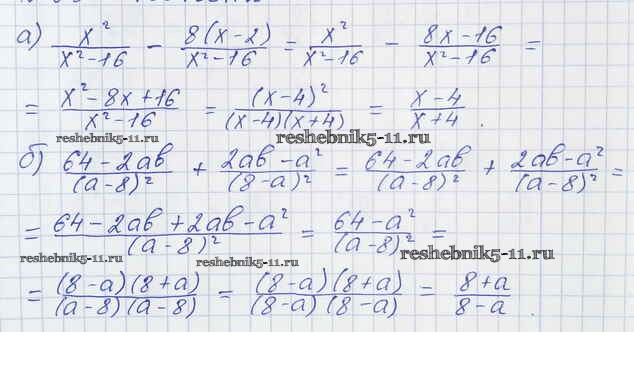 а) x²/(x²-16) - 8(x-2)/(x²-16) = x²/(x²-16) - (8x-16)/(x²-16) =
= (x²-8x+16)/(x²-16) = (x-4)²/((x-4)(x+4)) = (x-4)/(x+4).
reshebnik5-11.ru
reshebnik5-11.ru
б) (64-2ab)/(a-8)² + (2ab-a²)/(8-a)² = (64-2ab)/(a-8)² + (2ab-a²)/(a-8)² =
= (64-2ab+2ab-a²)/(a-8)² = (64-a²)/(a-8)² =
reshebnik5-11.ru
reshebnik5-11.ru
reshebnik5-11.ru
= (8-a)(8+a)/((a-8)(a-8)) = (8-a)(8+a)/((8-a)(8-a)) = (8+a)/(8-a).